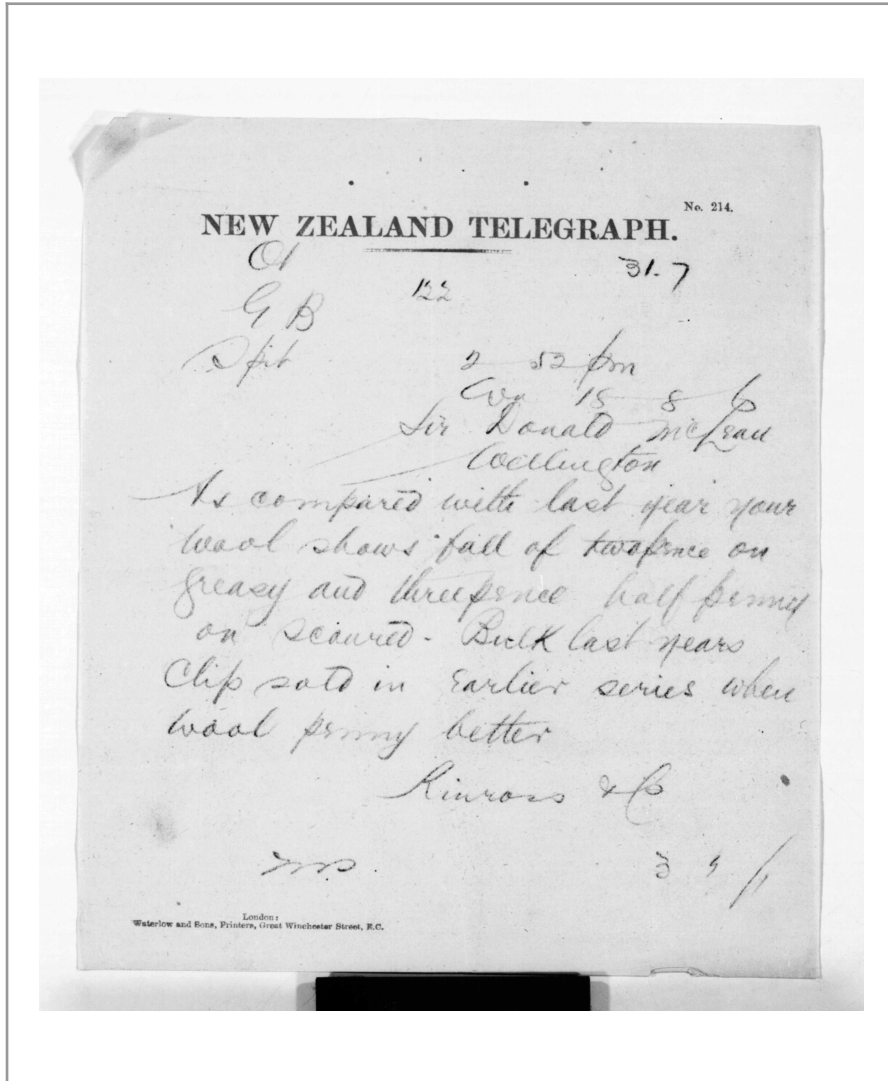 No. 214.
NEW ZEALAND TELEGRAPH.
31.7
122
G B
Spit 2 52 pm
18 8 6
Sir Donald McLean
Wellington
As compared with last year your
wool shows fall of twopence on
greasy and threepence half penny
on scoured. Bulk last years
Clip sold in Earlier series when
wool penny better
Kinross & Co
London:
Waterlow and Sons, Printers, Great Winchester Street, E.C.